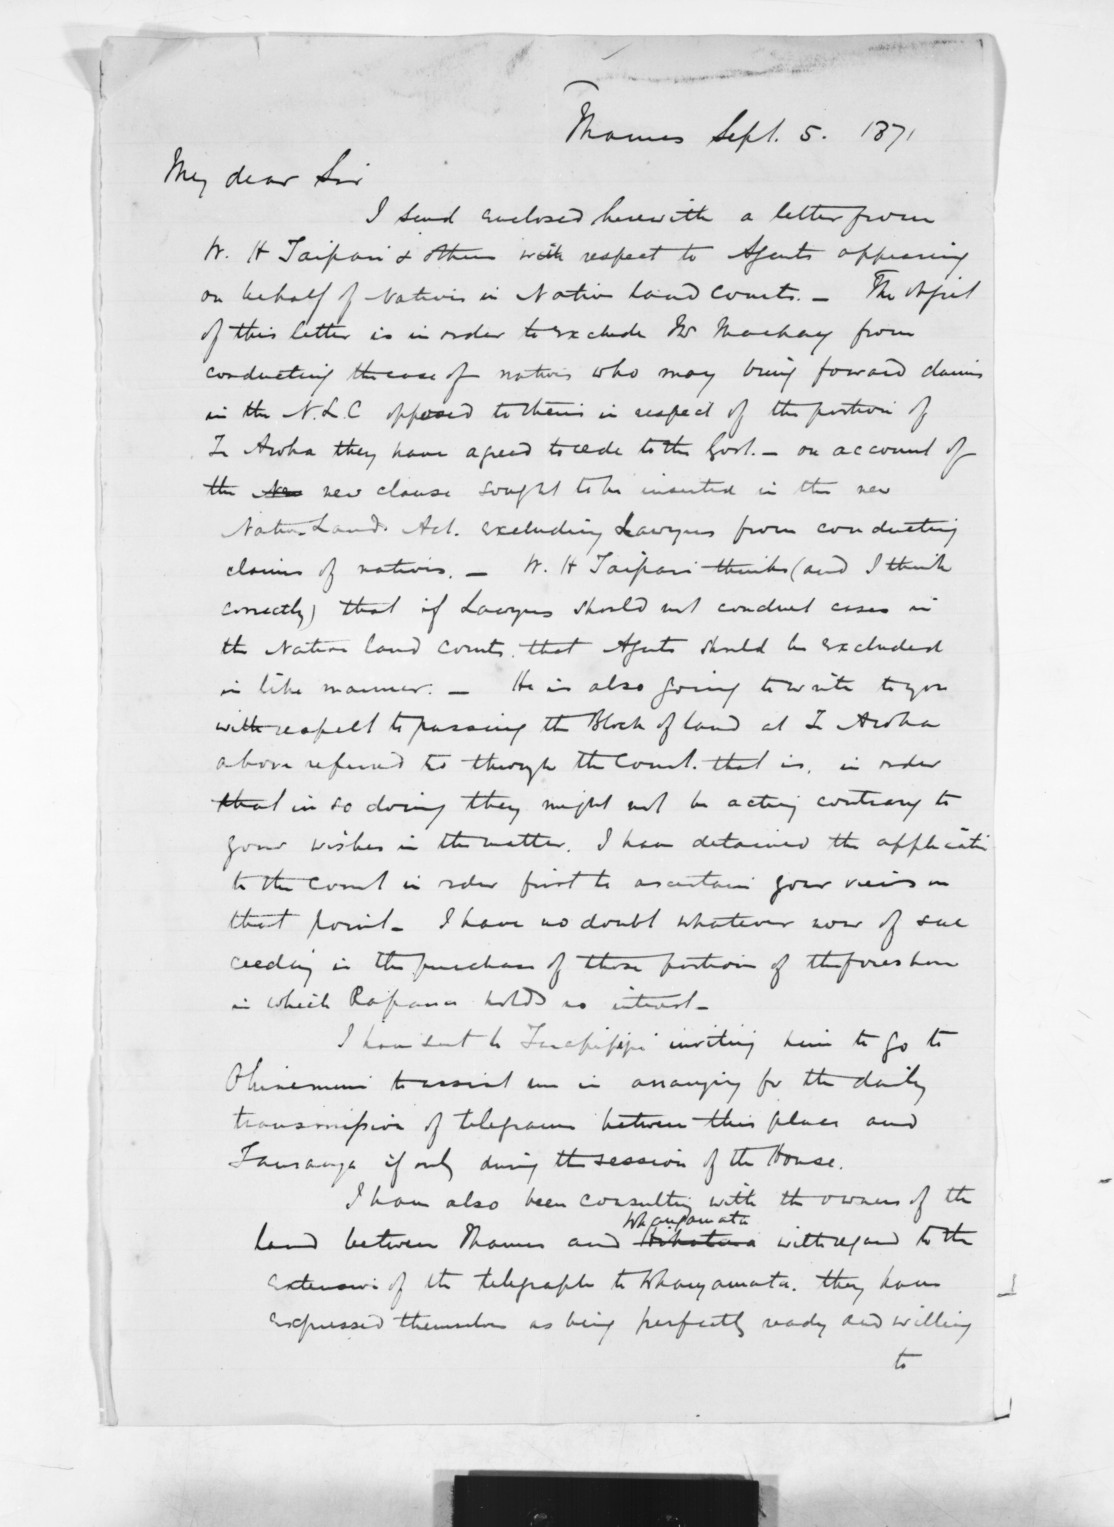 Thames Sept. 5. 1871
My dear Sir
I send enclosed herewith a letter from
W. H Taipari & others with respect to Agents appearing
on behalf of Natives in Native Land Courts. — The object
of this letter is in order to exclude Mr Mackay from
conducting the case of natives who may bring forward claims
in the N.L.C opposed to theirs in respect of the portion of
Te Aroha they have agreed to cede to the Govt. — on account of
the new clause sought to be inserted in the new
Native Lands Act. excluding Lawyers from conducting
claims of natives. — W. H Taipari thinks (and I think
correctly) that if Lawyers should not conduct cases in
the Native land Courts. that Agents should be excluded
in like manner. — He is also going to write to you
with respect to passing the Block of land at Te Aroha
above referred to through the Court. that is. in order
that in so doing they might not be acting contrary to
your wishes in the matter. I have detained the applicati
to the Court in order first to ascertain your views on
that point — I have no doubt whatever now of suc
ceeding in the purchase of those portions of the foreshore
in which Rapana holds no interest —
I have sent to Taraipipipi inviting him to go to
Ohinemuri to assist me in arranging for the daily
transmission of telegrams between this place and
Tauranga if only during the session of the House.
I have also been consulting with the owners of the
Whangamata
land between Thames and Hikutaia with regard to the
extension of the telegraph to Whangamata. they have
expressed themselves as being perfectly ready and willing
to